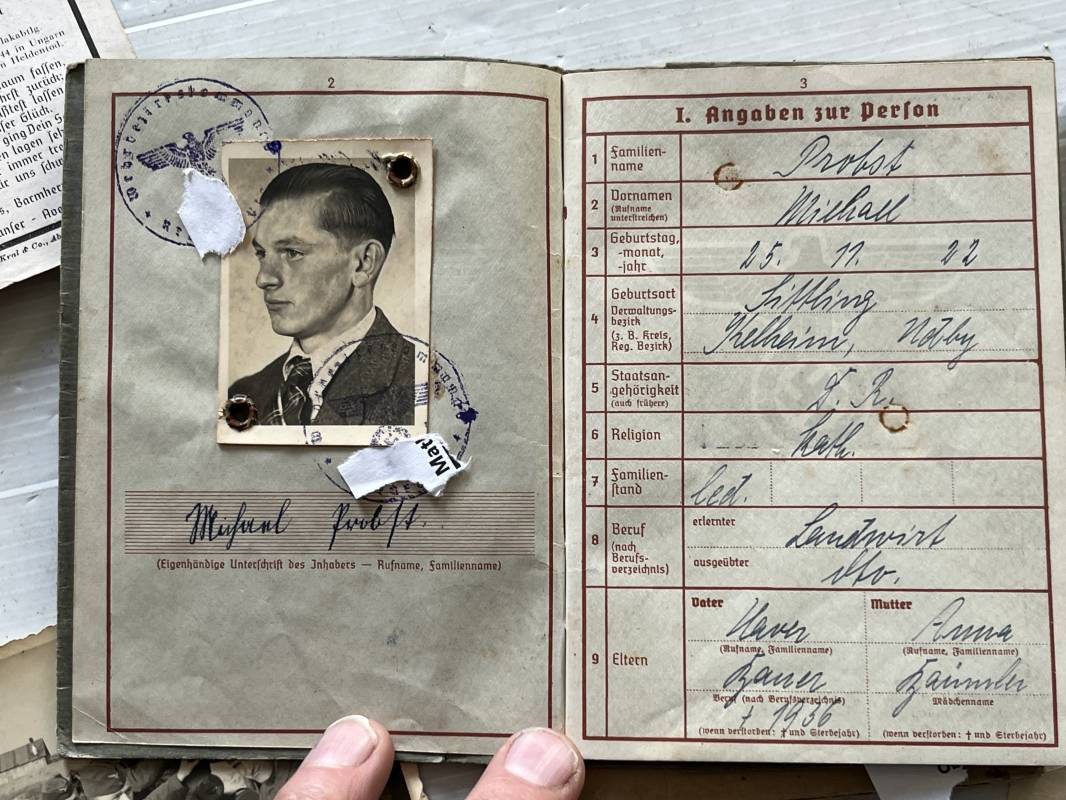 lakabtlg.
44 in Ungarn
n Heldentod.
aum fassen,
hrst zurück:
ßtest lassen
ser Glück.
ging Dein S
en lagen seh
immer tre
s, Barmherz
Kral & Co., Ab
2
Mat
Michael Probst.
(Eigenhändige Unterschrift des Inhabers — Rufname, Familienname)
3
I. Angaben zur Person
1 Familien-
name
Probst
2 Vornamen
(Rufname
unterstreichen)
Michael
3 Geburtstag,
-monat,
-jahr
25. 11. 22
4 Geburtsort
Verwaltungs-
bezirk
(z. B. Kreis,
Reg. Bezirk)
Sittling
Kelheim, Ndby
5 Staatsan-
gehörigkeit
(auch frühere)
D. R.
6 Religion
kath.
7 Familien-
stand
led.
8 Beruf
(nach
Berufs-
verzeichnis)
erlernter
Landwirt
ausgeübter
dto.
9 Eltern
Vater Mutter
Xaver Anna
(Rufname, Familienname) (Rufname, Familienname)
Bauer
Beruf (nach Berufsverzeichnis) Mädchenname
† 1936
(wenn verstorben: † und Sterbejahr) (wenn verstorben: † und Sterbejahr)